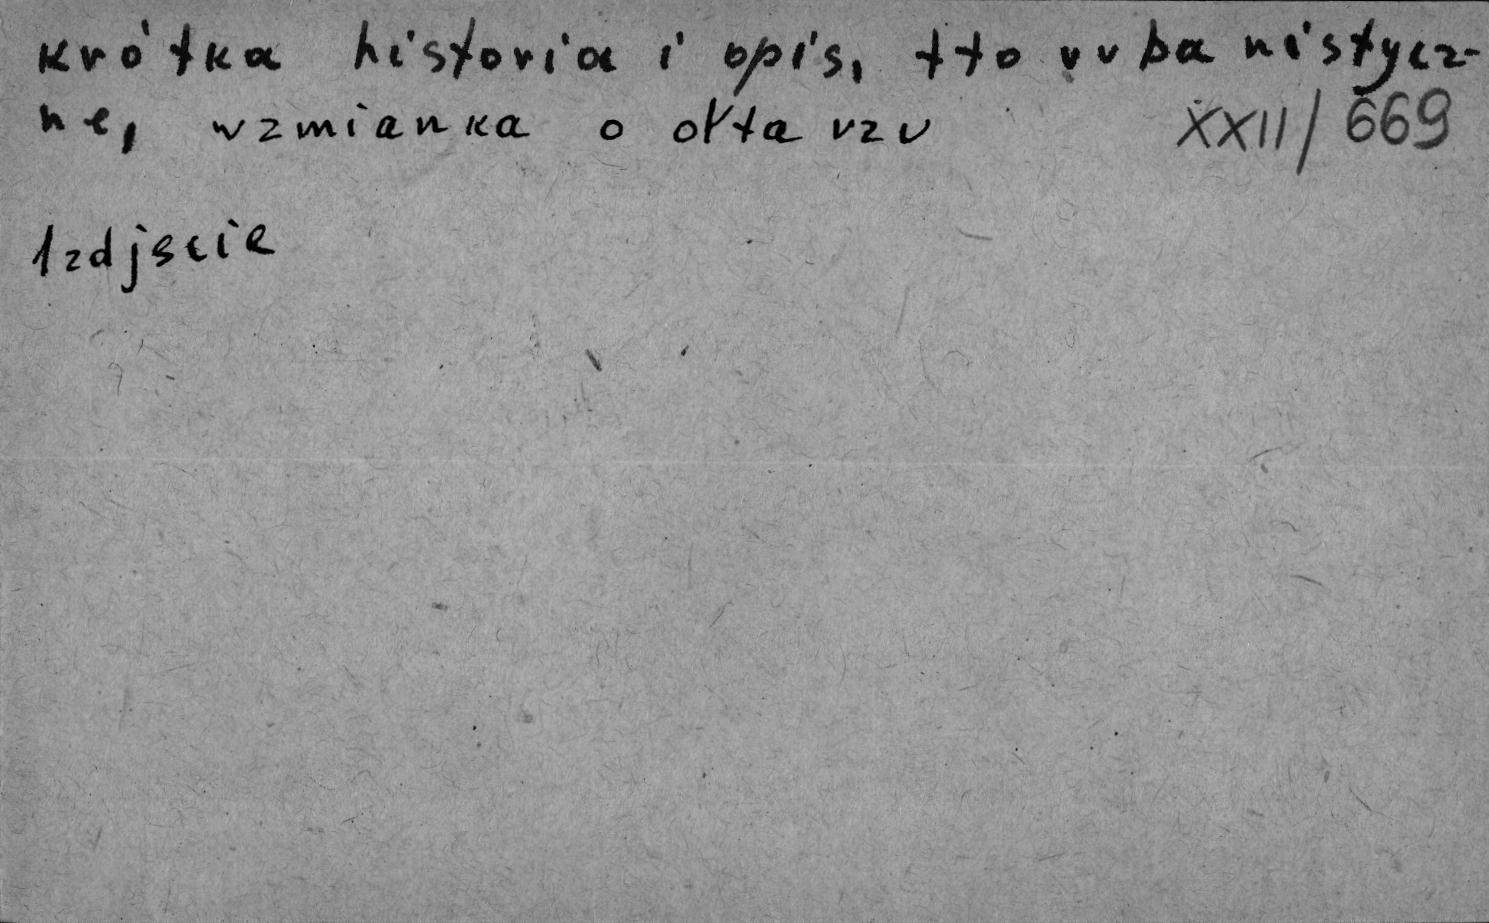 krótka historia i opis, tło urbanistycz-
ne, wzmianka o ołtarzu XXII/669
1 zdjęcie